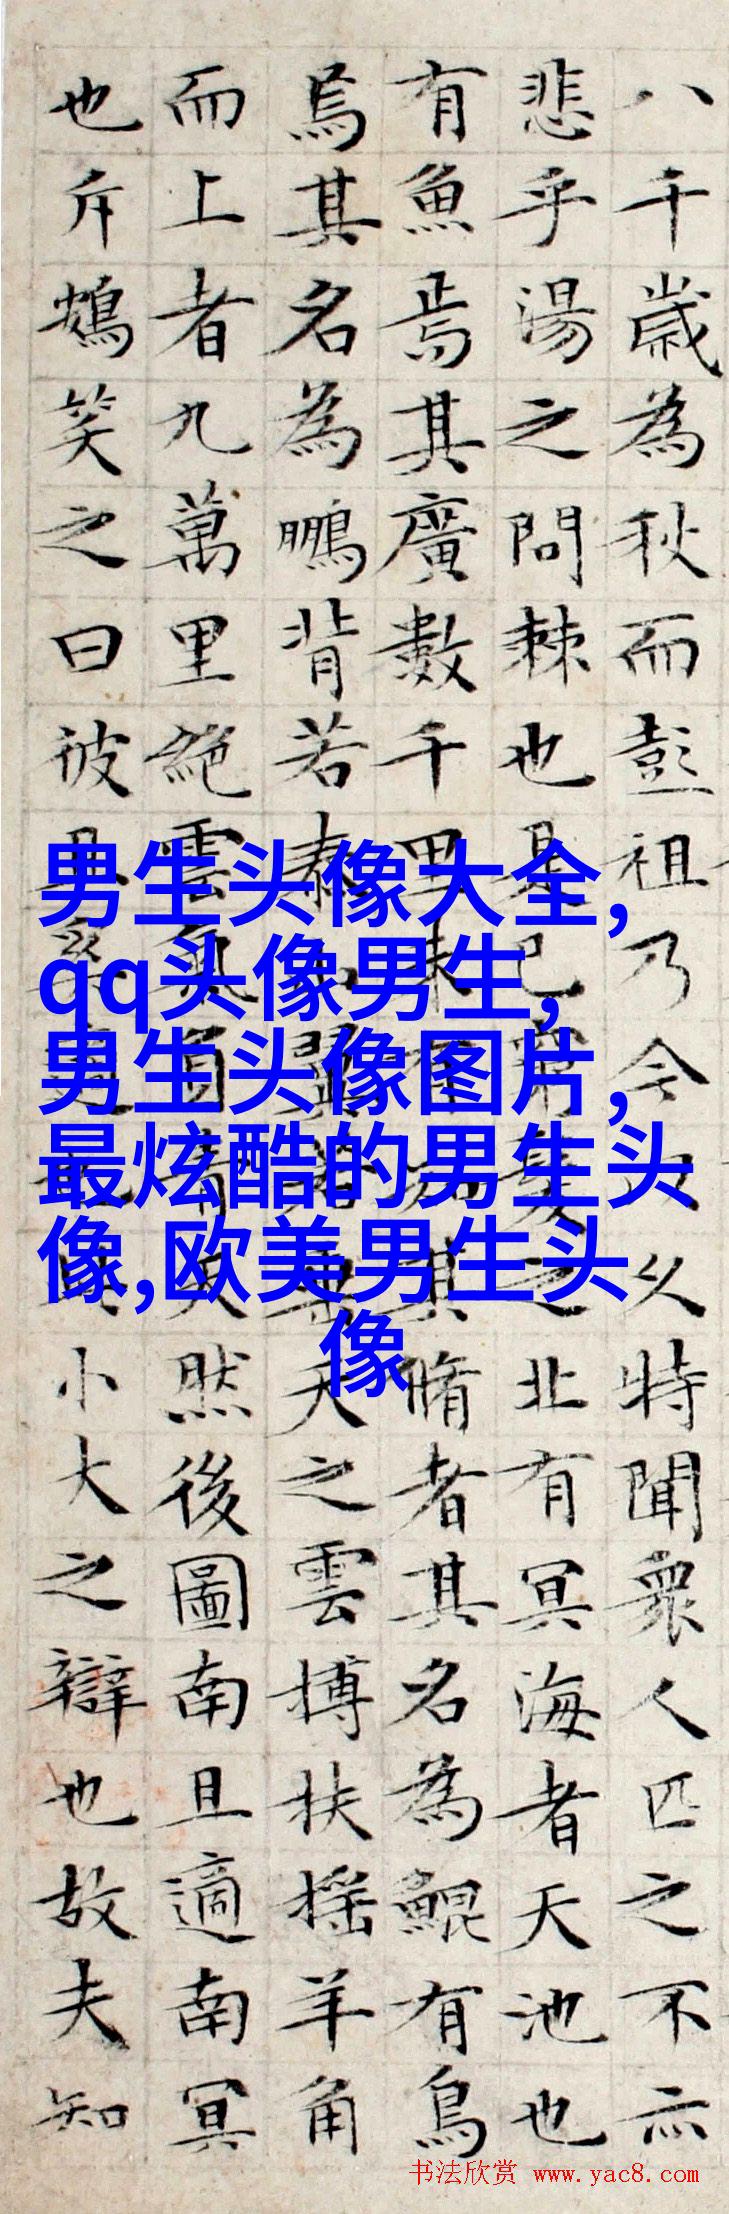 八千歲為秋而彭祖乃今以久特聞衆人匹之不亦
悲乎湯之問棘也是已窮髮之北有冥海者天池也
有魚焉其廣數千里未有知其脩者其名為鯤有鳥
焉其名為鵬背若泰山翼若垂天之雲搏扶摇羊角
而上者九萬里絶雲氣負青天然後圖南且適南冥
也斥鴳笑之曰彼且奚適也小大之辯也故夫知
男生头像大全,
qq头像男生,
男生头像图片,
最炫酷的男生头
像,欧美男生头
像
书法欣赏 www.yac8.com